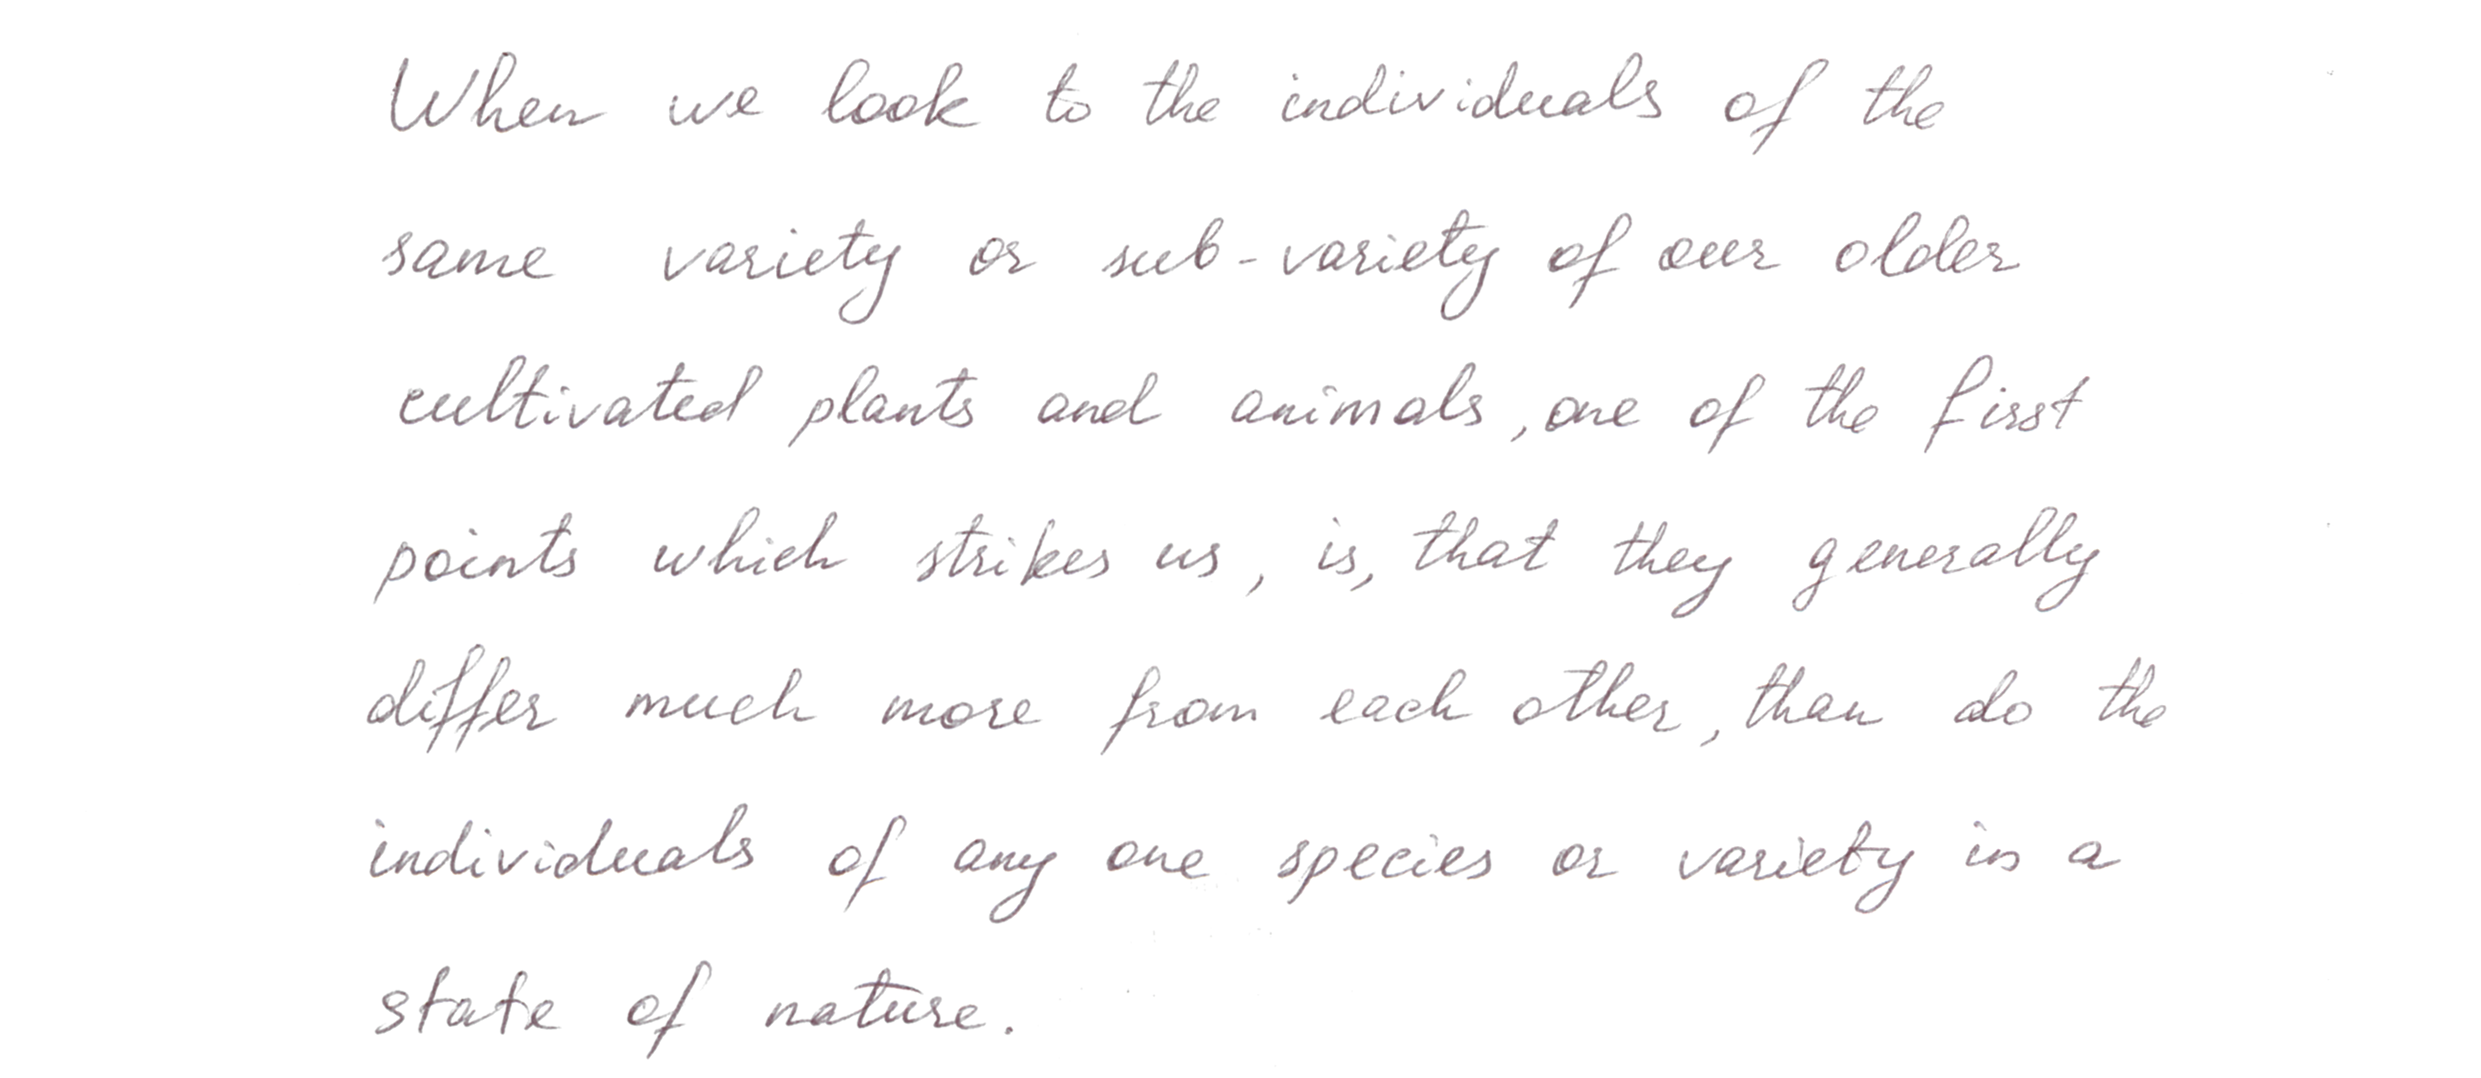 When we look to the individuals of the
same variety or sub-variety of our older
cultivated plants and animals, one of the first
points which strikes us, is, that they generally
differ much more from each other, than do the
individuals of any one species or variety in a
state of nature.